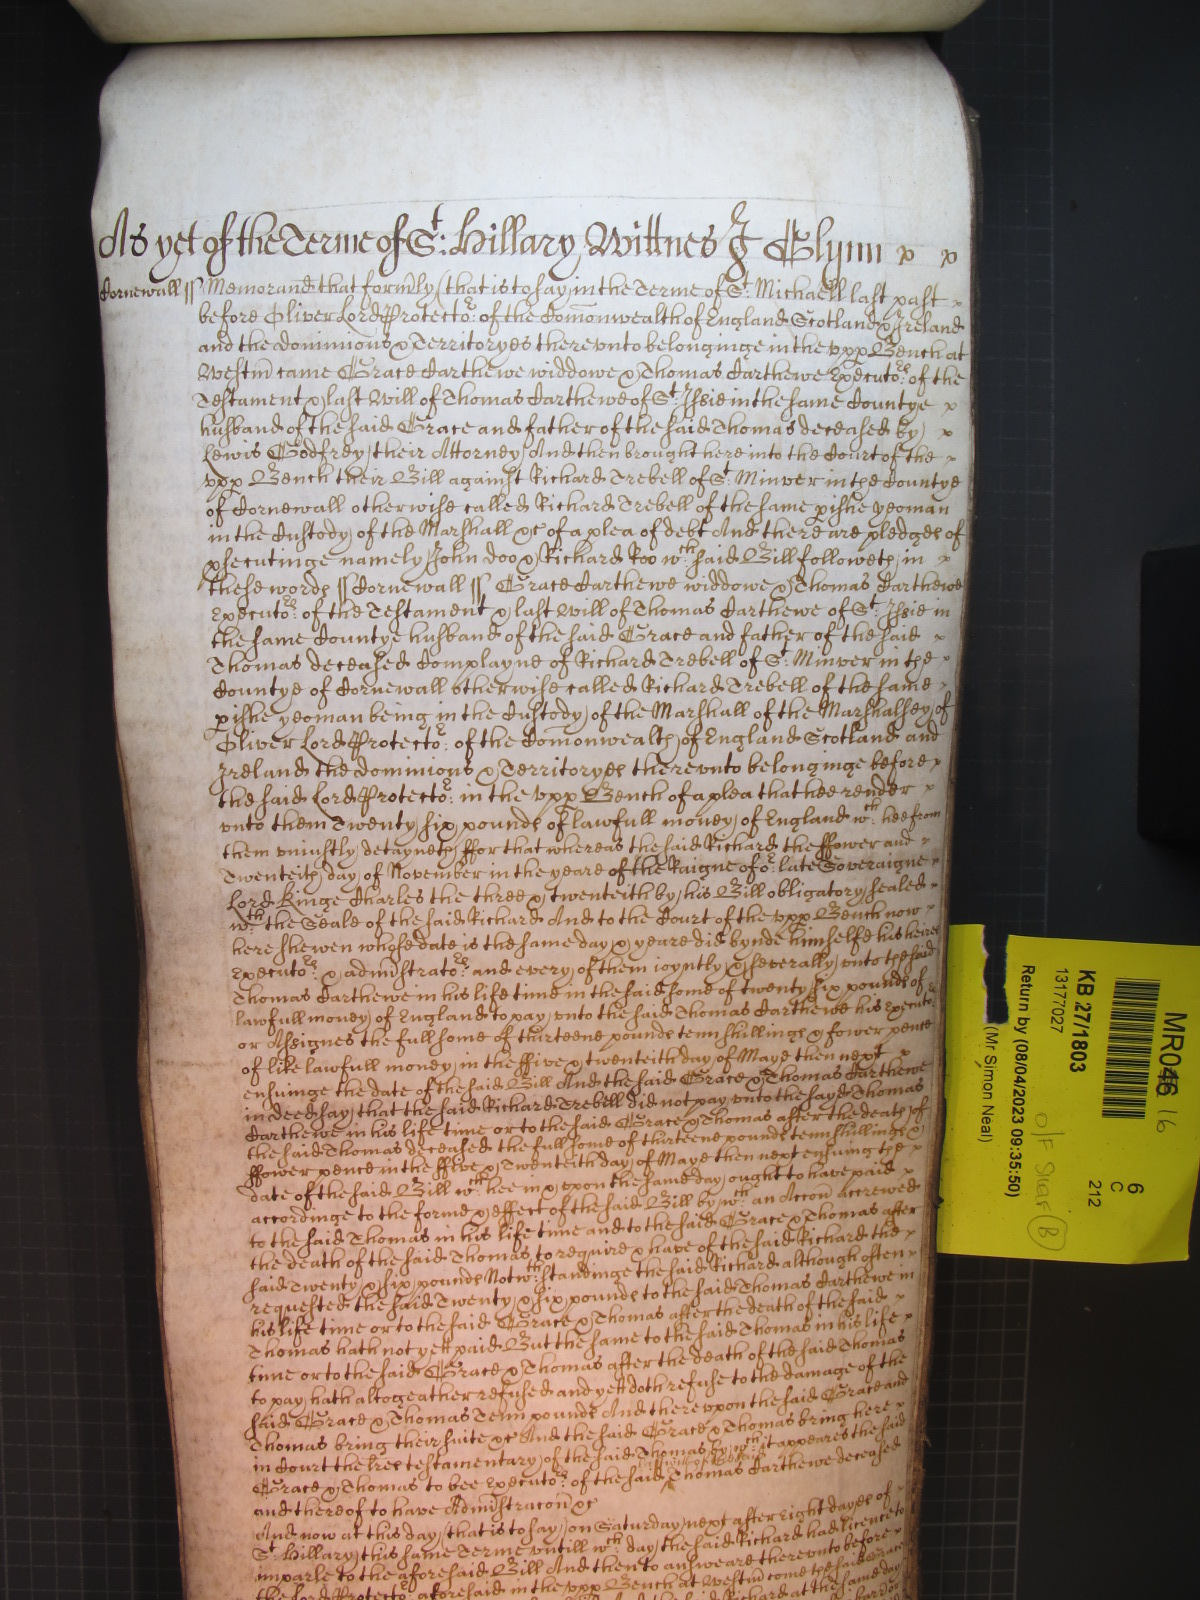 As yet of the Terme of St: Hillary Wittnes J Glynn x x
Cornewall ss Memorand that formly (that is to say) in the Terme of St: Michaell last past
before Oliver Lord Protector: of the Comonwealth of England Scotland & Ireland
and the dominions & Territoryes thereunto belonginge in the upp Bench at
Westm came Grace Carthewe widdowe & Thomas Carthewe Executors: of the
Testament & last Will of Thomas Carthewe of St: Issie in the same Countye x
husband of the said Grace and father of the said Thomas deceased by x
Lewis Godfrey their Attorney And then brought here into the Court of the
upp Bench their Bill against Richard Trebell of St: Minver in the Countye
of Cornewall otherwise called Richard Trebell of the same pishe yeoman
in the Custody of the Marshall &c of a plea of debt And there are pledges of
psecutinge namely John Doo & Richard Roo wch said Bill followeth in
these words ss Cornewall ss Grace Carthewe widdowe & Thomas Carthewe
Executors: of the Testament & last Will of Thomas Carthewe of St: Issie in
the same Countye husband of the said Grace and father of the said
Thomas deceased Complayne of Richard Trebell of St: Minver in the
Countye of Cornewall otherwise called Richard Trebell of the same
pishe yeoman being in the Custody of the Marshall of the Marshalsey of
Oliver Lord Protector: of the Comonwealth of England Scotland and
Ireland the dominions & Territoryes thereunto belonginge before
the said Lord Protector: in the upp Bench of a plea that hee render
unto them Twenty six pounds of lawfull money of England wch: hee from
them uniustly detayneth ffor that whereas the said Richard the ffower and
Twenteith day of November in the yeare of the Raigne of or: late Soveraigne
Lord Kinge Charles the three & twenteith by his Bill obligatory sealed
wth: the Seale of the said Richard And to the Court of the upp Bench now
here shewen whose date is the same day & yeare did bynde himselfe his heires
Executors: & administrators: and every of them ioyntly & severally unto the said
Thomas Carthewe in his life time in the said some of twenty six pounds of
lawfull money of England to pay unto the said Thomas Carthewe his Executors
or Assignes the full some of thirteene pounds tenn shillings & fower pence
of like lawfull money in the ffive & twenteith day of Maye then next
ensuinge the date of the said Bill And the said Grace & Thomas Carthewe
in deed say that the said Richard Trebell did not pay unto the sayd Thomas
Carthewe in his life time or to the said Grace & Thomas after the death of
the said Thomas deceased the full some of thirteene pounds tenn shillings &
ffower pence in the ffive & Twenteith day of Maye then next ensuing the
date of the said Bill wch hee in & upon the same day ought to have paid
accordinge to the forme & effect of the said Bill by wch: an Accon accrewed
to the said Thomas in his life time and to the said Grace & Thomas after
the death of the said Thomas to require & have of the said Richard the
said Twenty & six pounds Notwthstandinge the said Richard although often
requested the said Twenty & six pounds to the said Thomas Carthewe in
his life time or to the said Grace & Thomas after the death of the said
Thomas hath not yett paid But the same to the said Thomas in his life
time or to the said Grace & Thomas after the death of the said Thomas
to pay hath altogeather refused and yet doth refuse to the damage of the
said Grace & Thomas Tenn pounds And thereupon the said Grace and
Thomas bring their suite &c And the said Grace & Thomas bring here
in Court the lres testamentary of the said Thomas by wch: it appeares the said
Grace & Thomas to bee Executors: of the said Thomas Carthewe deceased
and thereof to have Administracon &c
And now at this day (that is to say) on Saturday next after Eight dayes of
St: Hillary this same Terme untill wch: day the said Richard had licence to
imparle to the aforesaid Bill And then to answeare thereunto before
the Lord Protector: aforesaid in the upp Bench at Westm come the said Grace
MR046 16
KB 27/1803
13177027
Return by (08/04/2023 09:35:50)
(Mr Simon Neal)
6
C
212